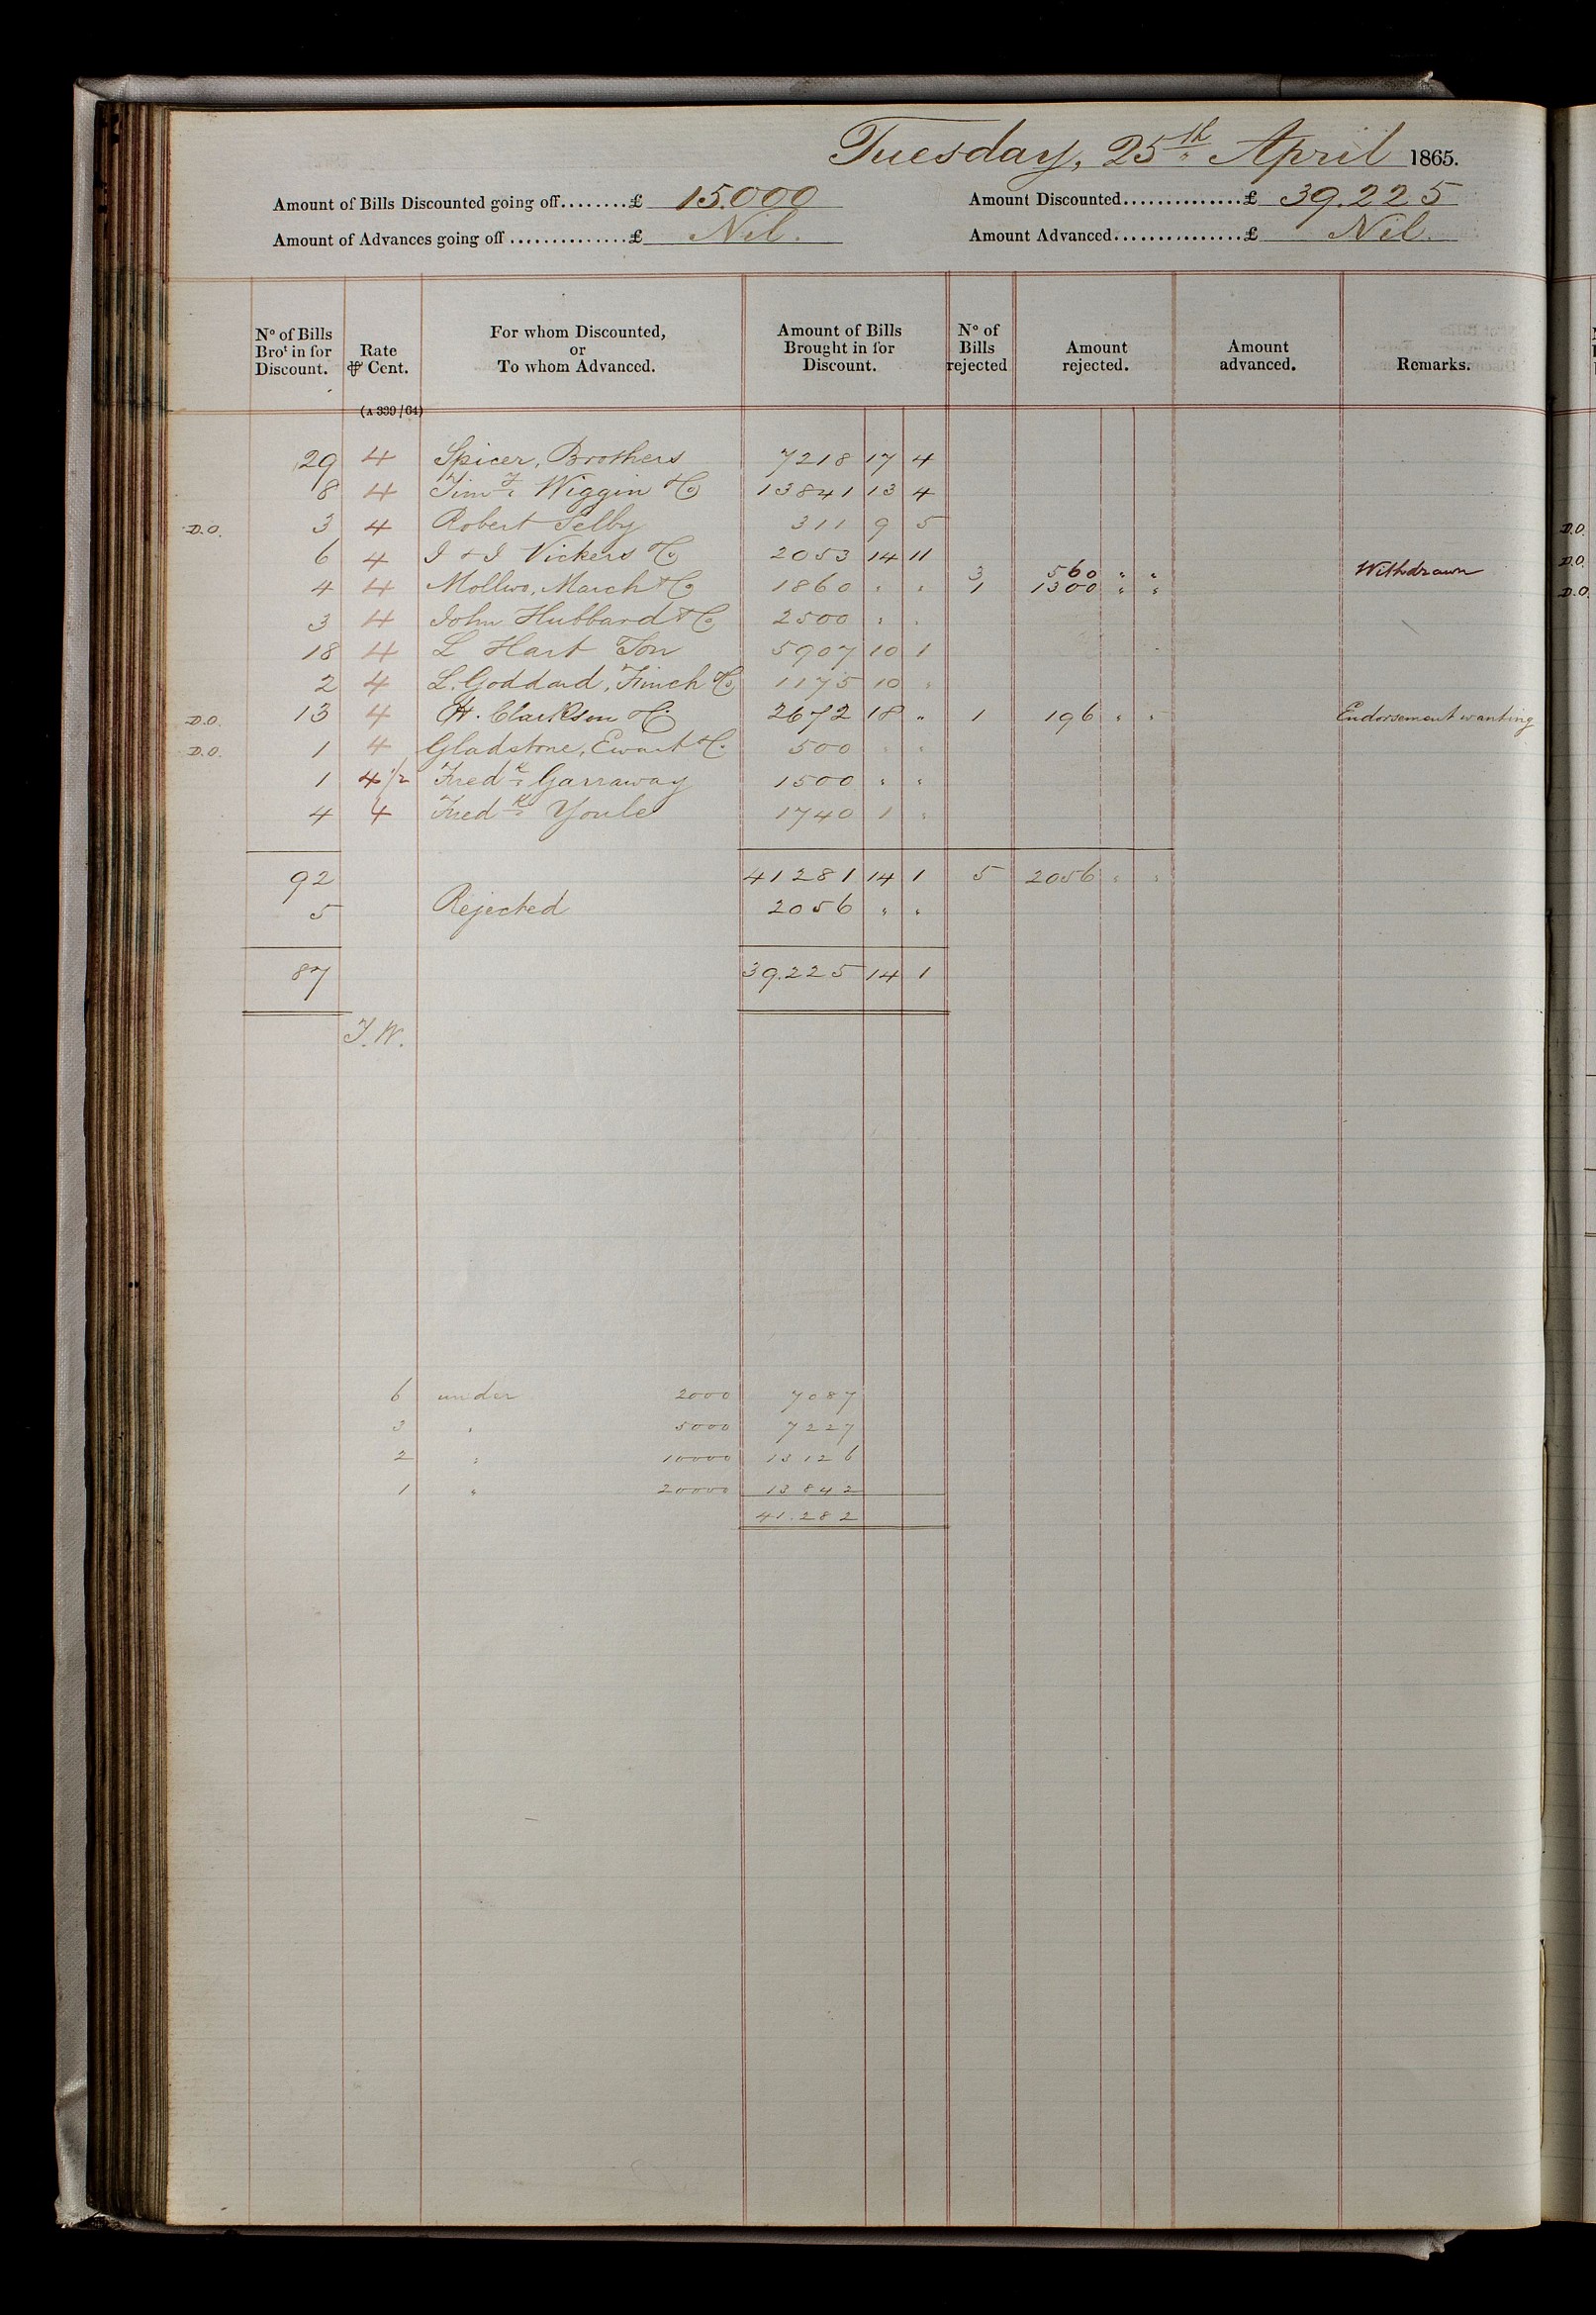 Tuesday, 25th April 1865.
Amount of Bills Discounted going off........£ 15.000 Amount Discounted...............£ 39.225
Amount of Advances going off ..............£ Nil. Amount Advanced................£ Nil.
No of Bills Brot in for Discount. Rate ⅌ Cent. For whom Discounted, or To whom Advanced. Amount of Bills Brought in for Discount. No of Bills rejected Amount rejected. Amount advanced. Remarks.
(A 339/64)
29 4 Spicer, Brothers 7218 17 4
8 4 Timy. Wiggin & Co 13841 13 4
D.O. 3 4 Robert Selby 311 9 5
6 4 J & J Vickers & Co 2053 14 11
3 560 " " Withdrawn
4 4 Mollwo, March & Co 1860 " " 1 1300 " "
3 4 John Hubbard & Co 2500 " "
18 4 L Hart Son 5907 10 1
2 4 L. Goddard, Finch & Co 1175 10 "
D.O. 13 4 H. Clarkson & Co 2672 18 " 1 196 " " Endorsement wanting
D.O. 1 4 Gladstone, Ewart & Co. 500 " "
1 4 1/2 Fredk. Garraway 1500 " "
4 4 Fredk. Youle 1740 1 "
92 41281 14 1 5 2056 " "
5 Rejected 2056 " "
87 39.225 14 1
T.W.
6 under 2000 7087
3 " 5000 7227
2 " 10000 13126
1 " 20000 13842
41.282
D.O.
D.O.
D.O.